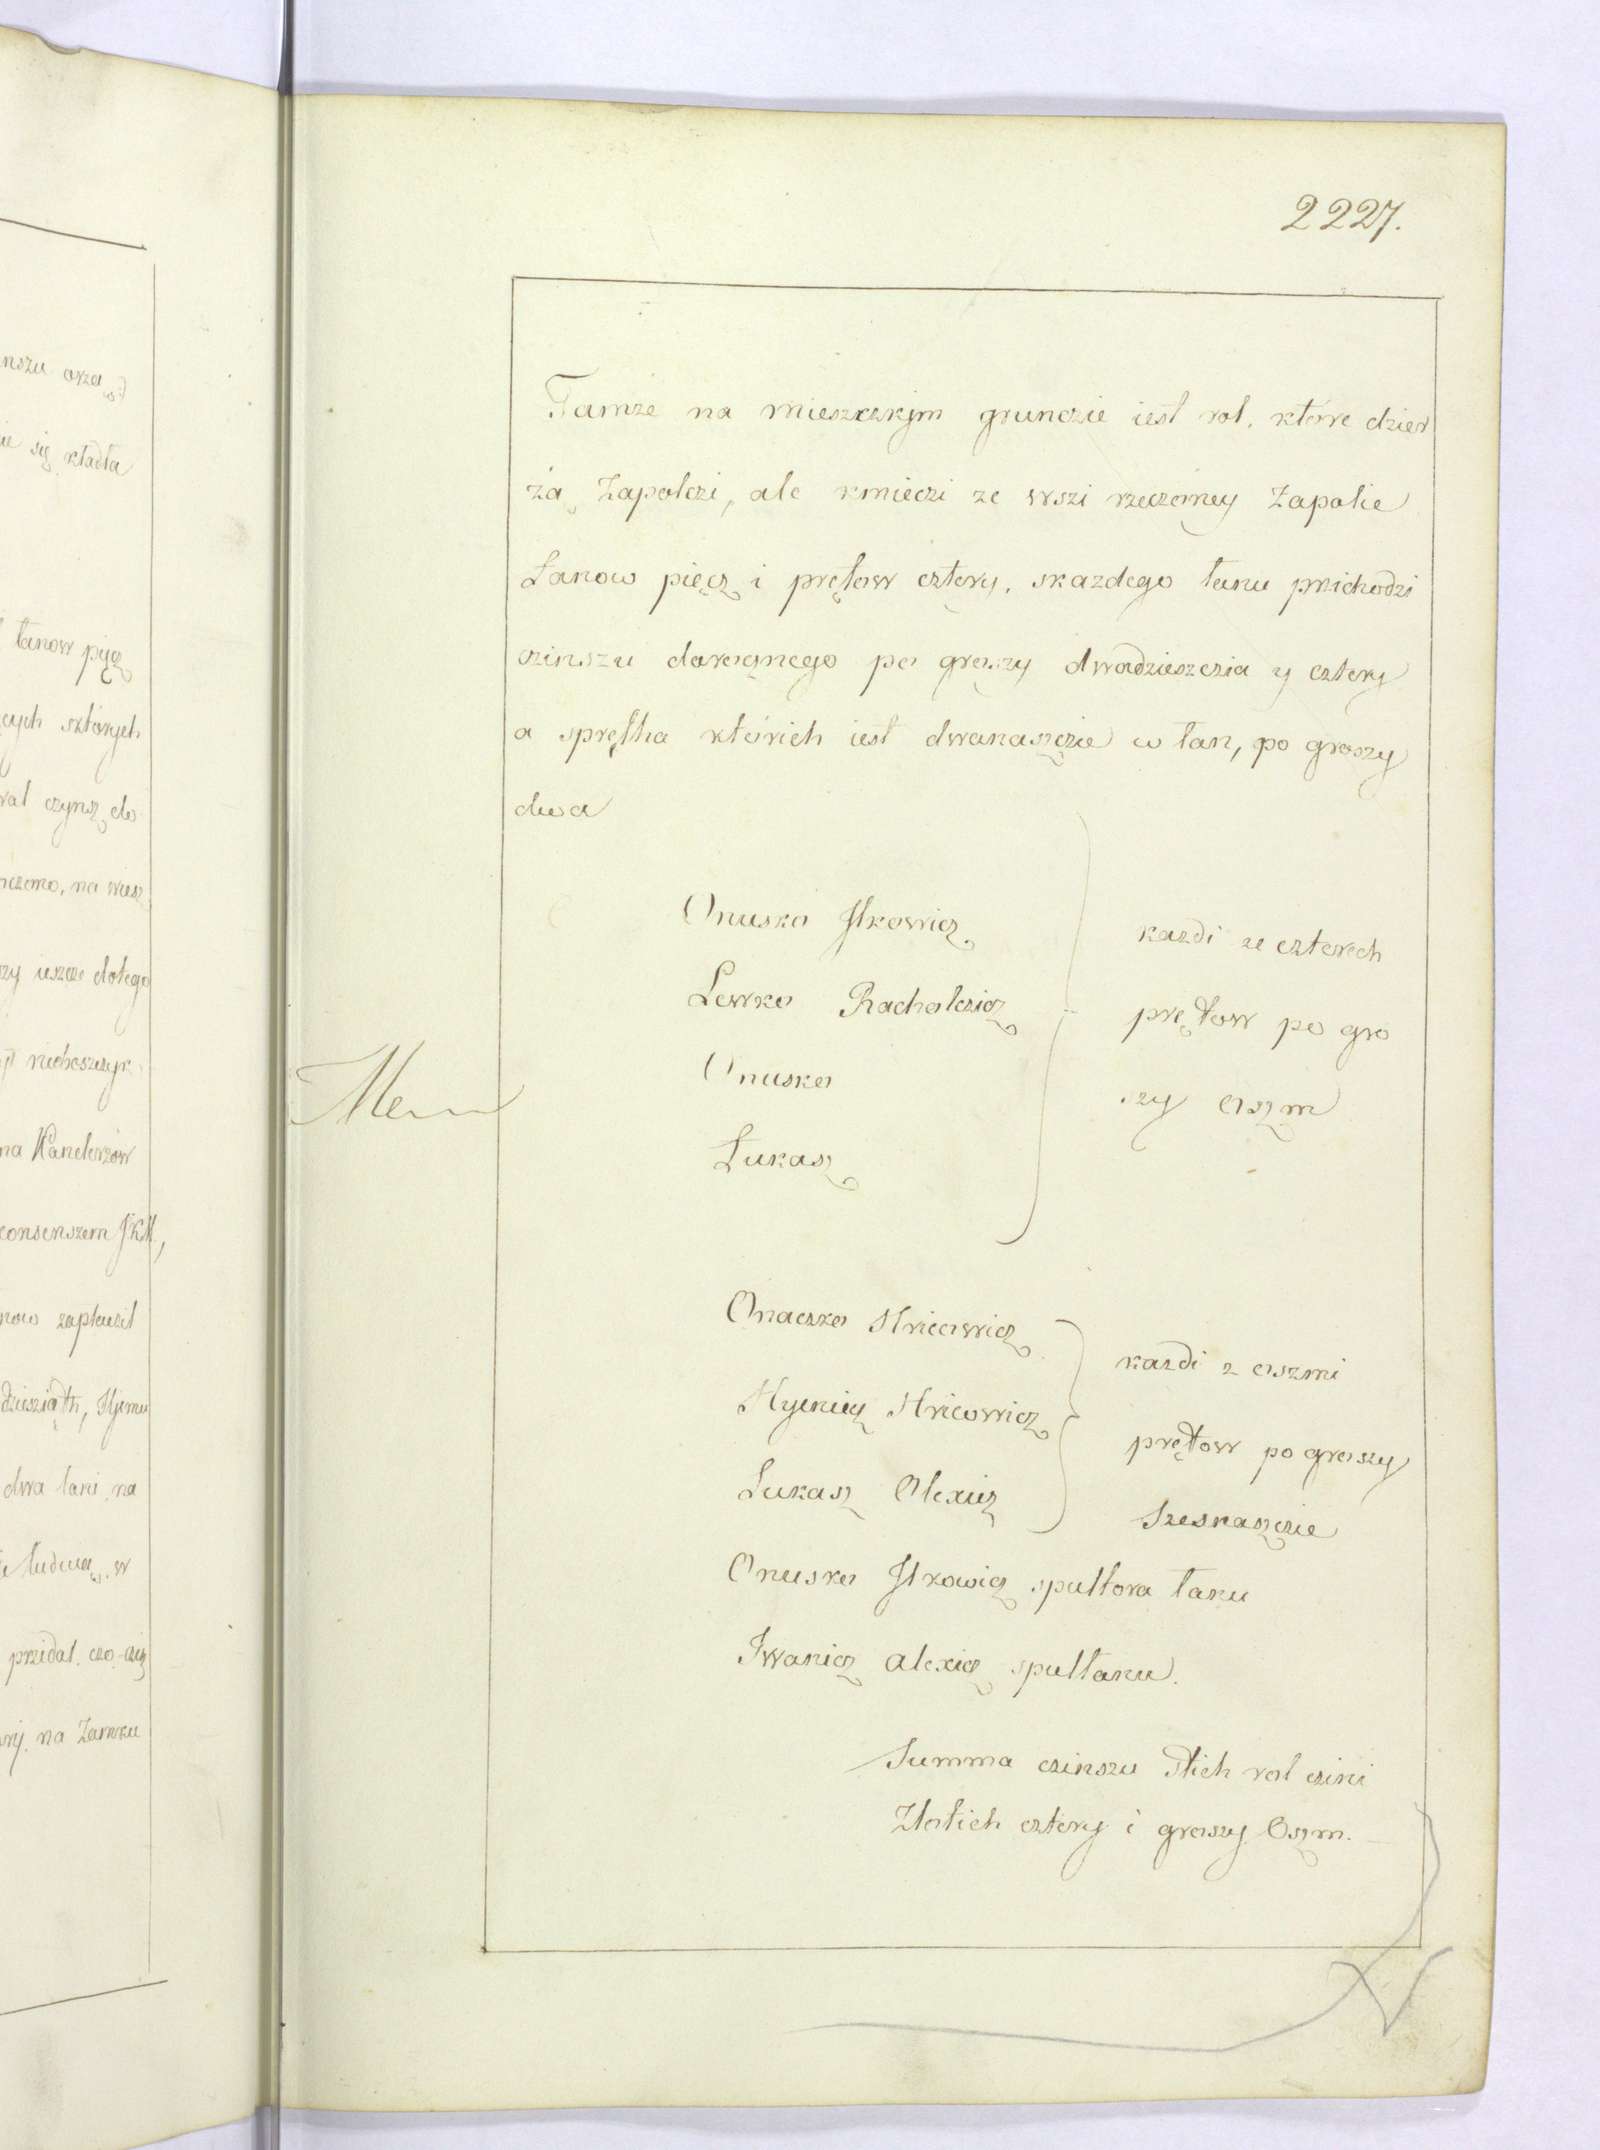 nszu orzą
ie się kładła
łanow pięcz
cych sztórych
rał czynsz do
niczemo, na wiesz
zy iescze dotego
niedoszczyk
na Handerzów
consenszem JKM,
now zapłuził
dziesziąth, Hjemu
dwa łani na
Ludwą w
przidał. czo czisz
wij. na Zamku
2227.
Tamże na mieszczskijm grunczie iesł rol, które dzier
żą Zapolczi, ale kmieczi ze wszi rzeczemey Zapolie
Łanow pięcz i prętow cztery, skazdego łanu prichodzi
czinszu dorocznego po groszy dwadzieszczia y cztery
a spręthа którich iesł dwanaszczie w łan, po groszy
dwa
Onusko Jłkowicz
Lewko Racholczicz
Onusko
Łukasz
kazdi ze czterech
prętow po gro
szy oszm
Mem
Onaczko Hricowicz
Hyeniey Hricowicz
Łukasz Olexicz
kazdi z oszmi
prętow po groszy
Szesnaszczie
Onusko Jłkowicz spułtora łanu
Iwanicz Alexicz spułłanu.
Summa czinszu stich rol czini
Złotich cztery i groszy Oszm.